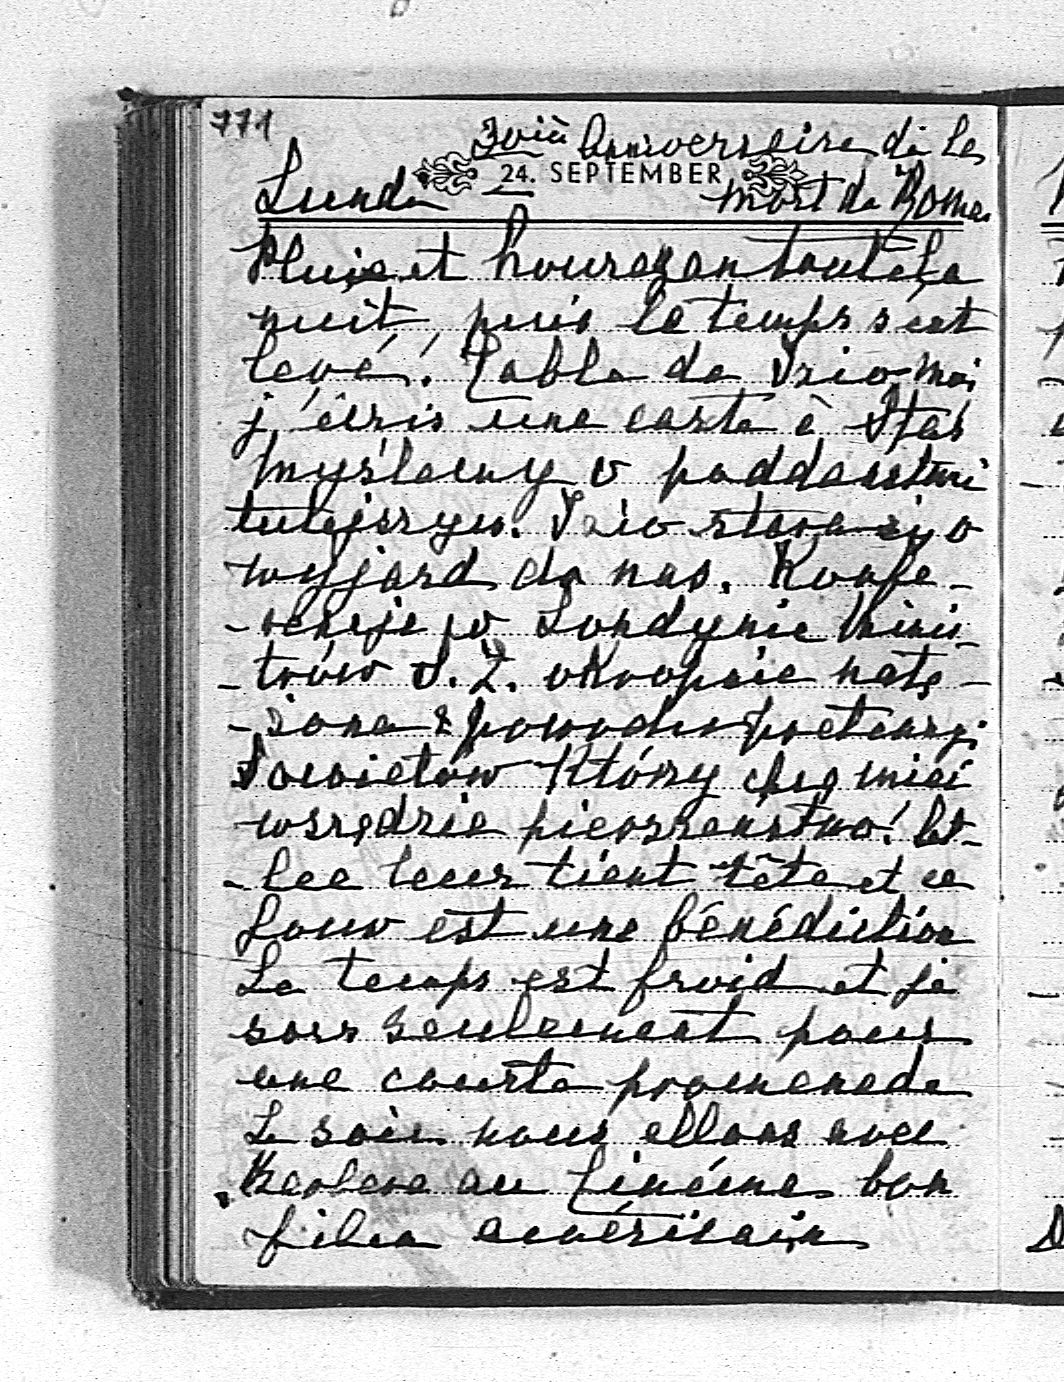 771
30ième Anniversaire de la
24. SEPTEMBER
Lundi mort de Roma
Pluie et houragan toute la
nuit, puis le temps s'est
levé! Table de Trio moi
j'écris une carte à Staś
Myślemy o poddaństwie
tutejszym. Trio stara się o
wyjazd do nas. Konfe-
-rencje w Londynie Mini-
-trów S. Z. okropnie natę-
-żona z powodu pretensji
Sowietów którzy chcą mieć
wszędzie pierwszeństwo! At-
-lee leur tient tête et ce
Louw est une bénédiction
Le temps est froid et je
sors seulement pour
une courte promenade
Le soir nous allons avec
au Cinéma bon
film américain